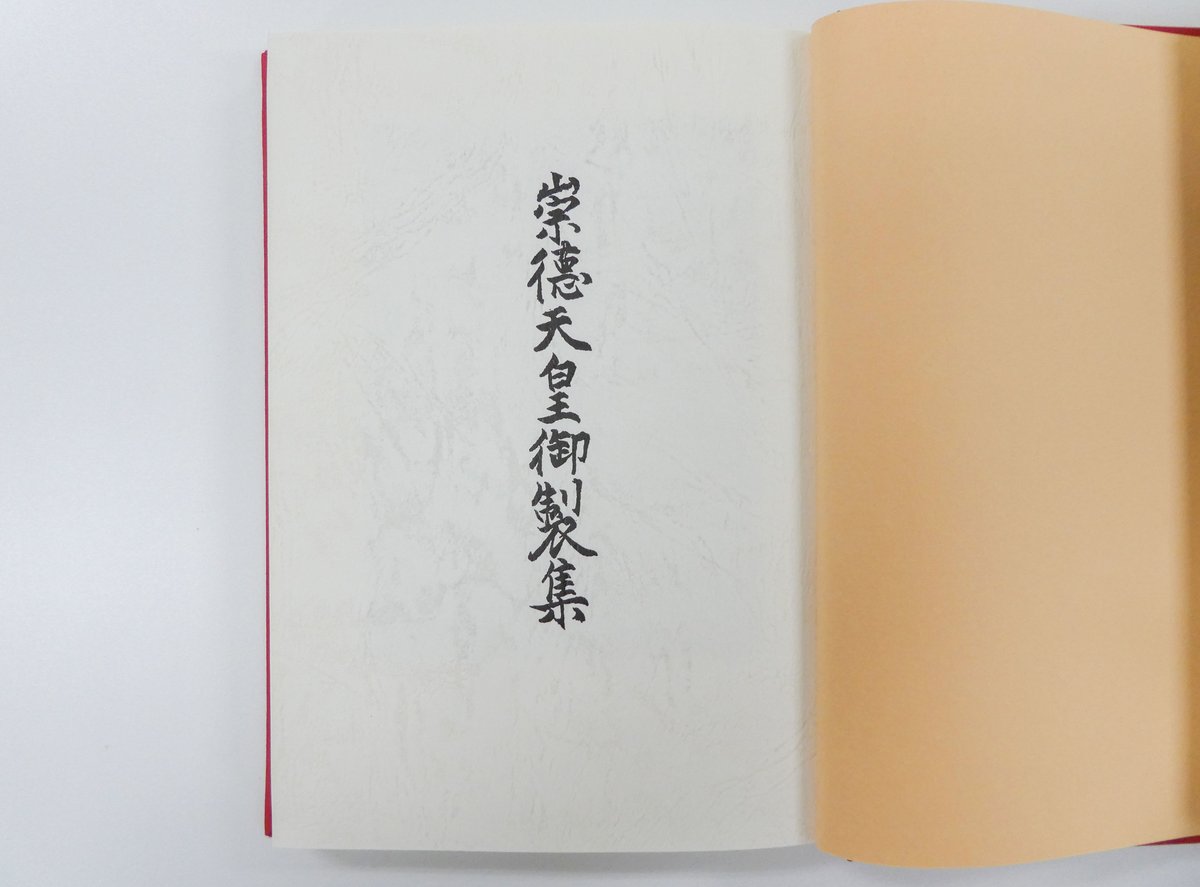 崇徳天皇御製集